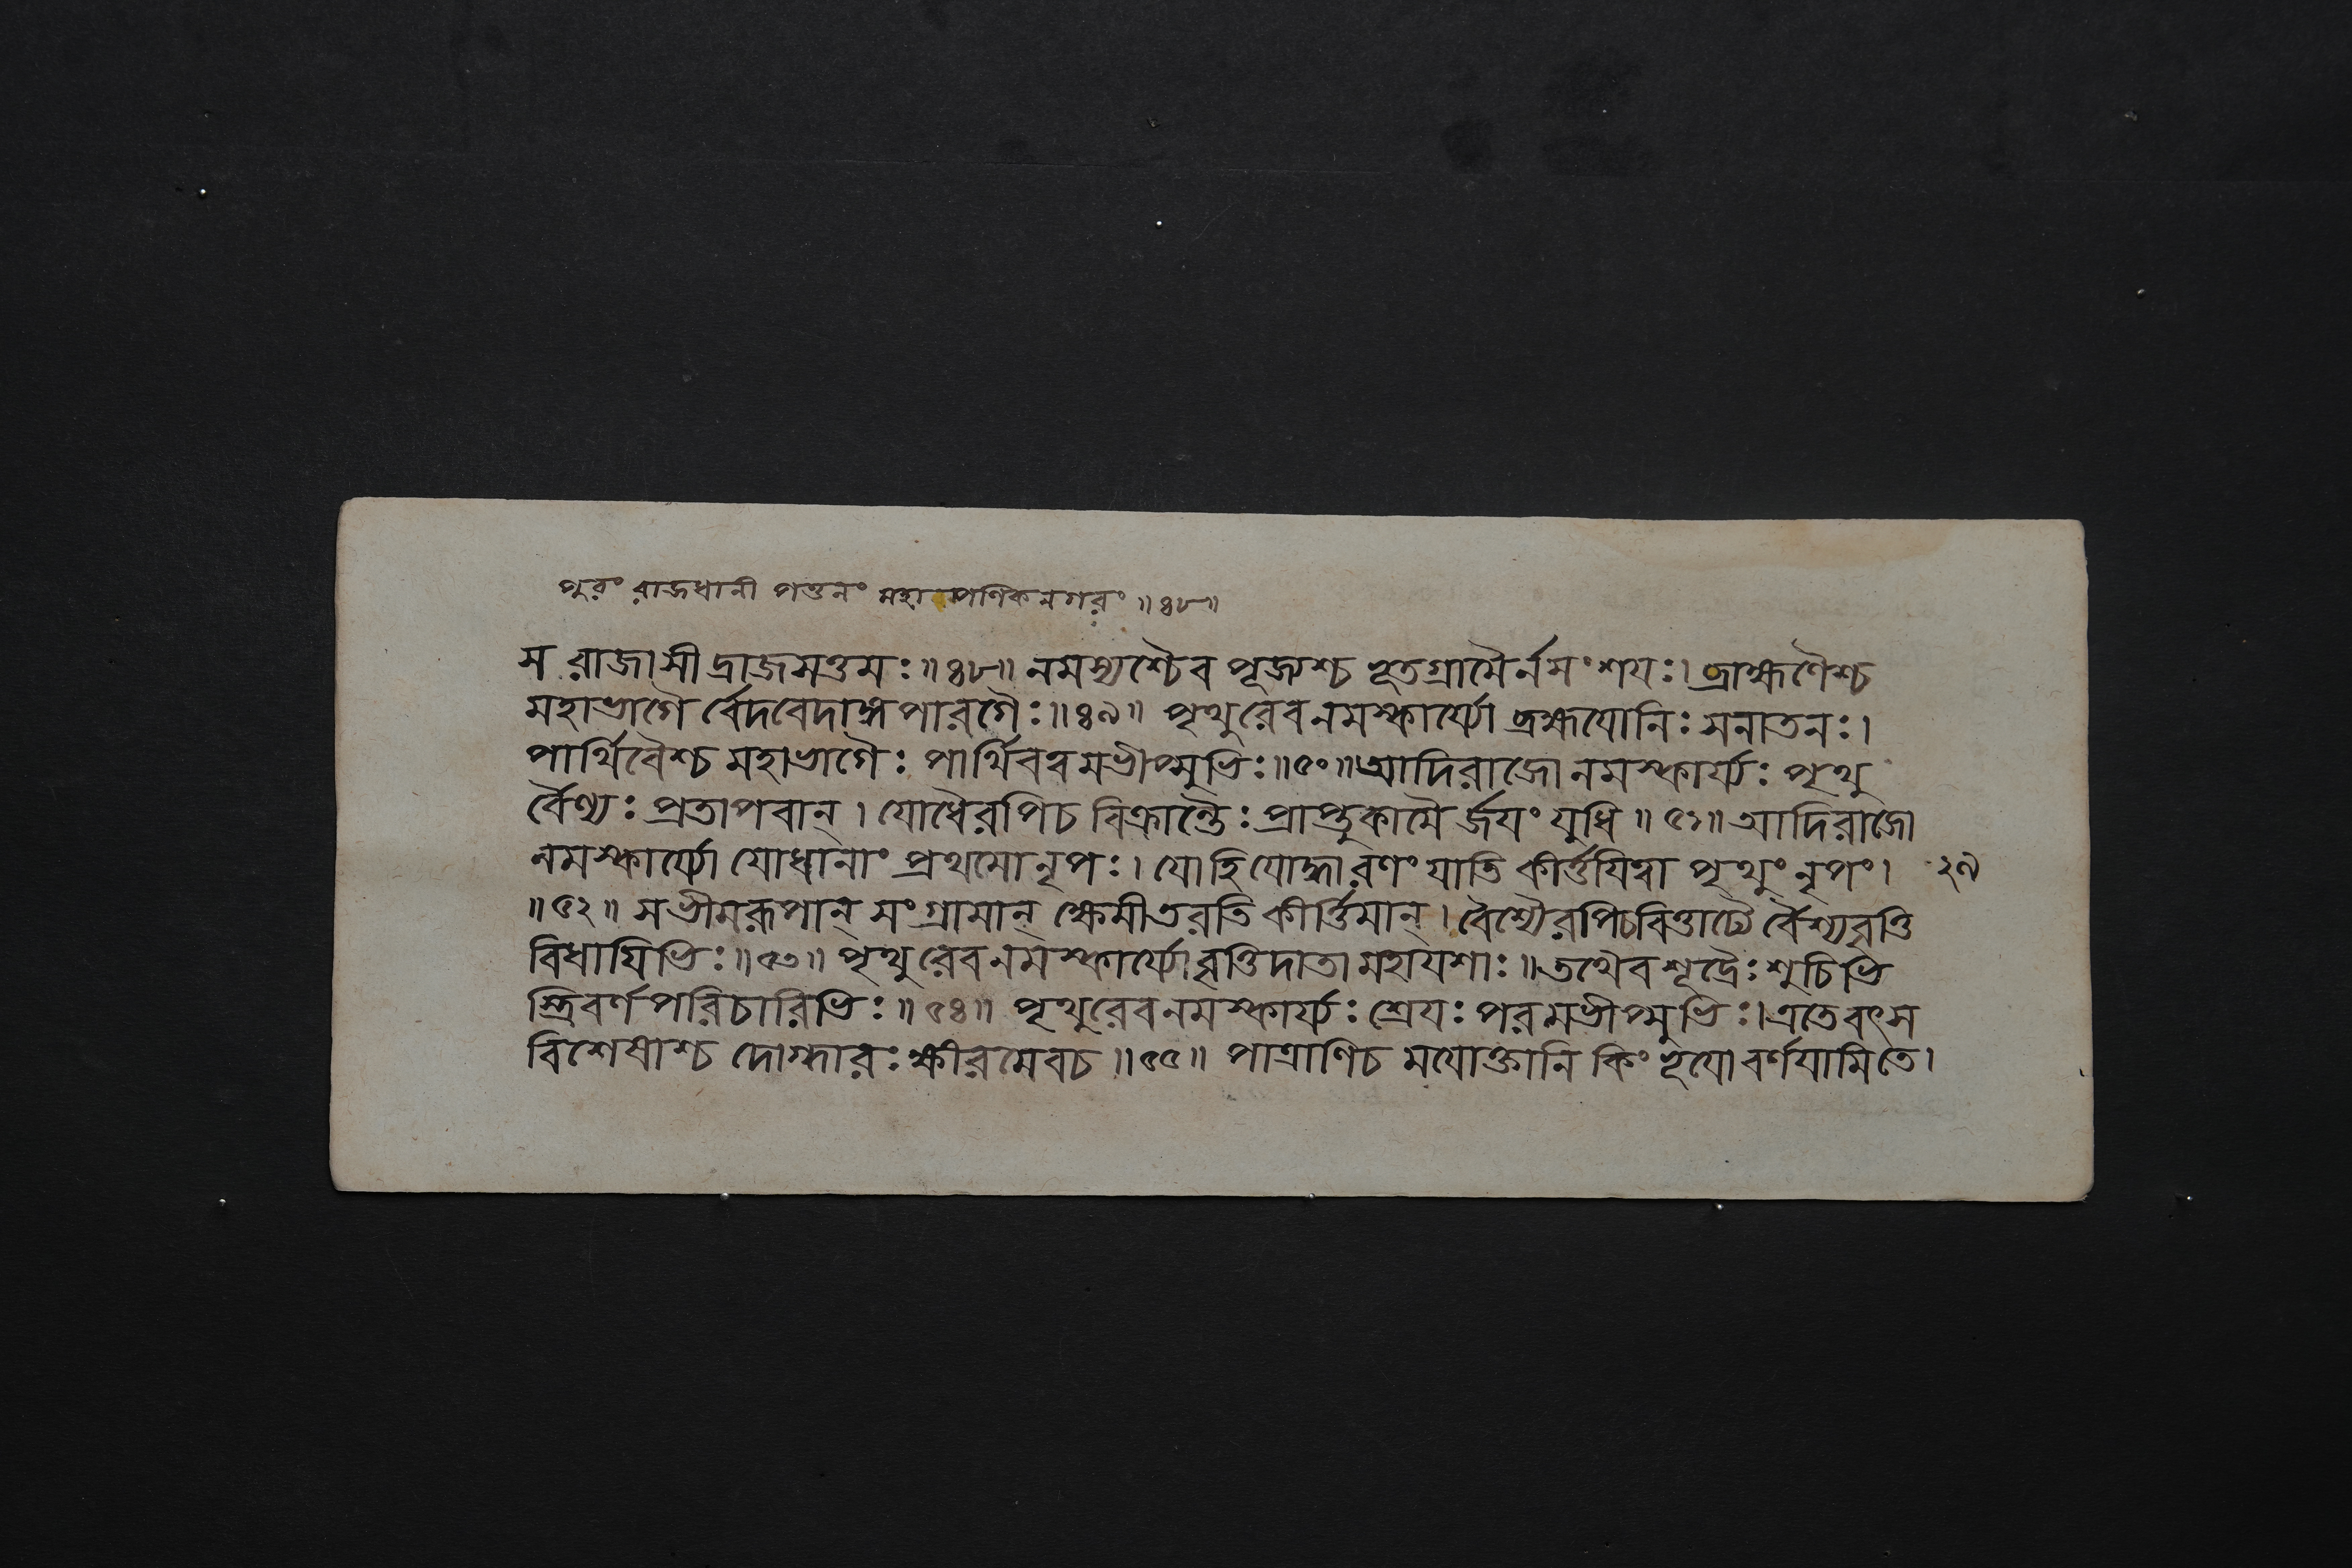 পুরং রাজধানী পত্তনং মহাপণিকনগরং ॥৪৮॥
স রাজাসীদ্রাজসত্তমঃ॥৪৮॥ নমস্যশ্চৈব পূজ্যশ্চ ভূতগ্রামৈর্নসংশয়ঃ। ব্রাহ্মণৈশ্চ
মহাভাগৈ র্বেদবেদাঙ্গপারগৈঃ॥৪৯॥ পৃথুরেবনমস্কার্য্যো ব্রহ্মযোনিঃ সনাতনঃ।
পার্থিবৈশ্চ মহাভাগৈঃ পার্থিবত্বমভীপ্সুভিঃ॥৫০॥ আদিরাজো নমস্কার্য্যঃ পৃথু
র্বৈণ্যঃ প্রতাপবান্। যোধৈরপিচ বিক্রান্তৈঃ প্রাপ্তুকামৈ র্জয়ং যুধি॥৫১॥ আদিরাজো
নমস্কার্য্যো যোধানাং প্রথমো নৃপঃ। যোহিযোদ্ধারণং যাতি কীর্ত্তয়িত্বা পৃথুং নৃপং। ২৯
॥৫২॥ সভীমরূপান্ সংগ্রামান্ ক্ষেমীতরতি কীর্ত্তিমান্। বৈশ্যৈরপিচবিত্তাঢ্যৈ র্বৈশ্যবৃত্তি
বিধায়িভিঃ॥৫৩॥ পৃথুরেবনমস্কার্য্যো বৃত্তিদাতা মহাযশাঃ॥ তথৈবশূদ্রৈঃ শুচিভি
স্ত্রিবর্ণপরিচারিভিঃ॥৫৪॥ পৃথুরেবনমস্কার্য্যঃ শ্রেয়ঃ পরমভীপ্সুভিঃ। এতেবৎস
বিশেষাশ্চ দোগ্ধারঃ ক্ষীরমেবচ॥৫৫॥ পাত্রাণিচ ময়োক্তানি কিং ভূয়ো বর্ণয়ামিতে।